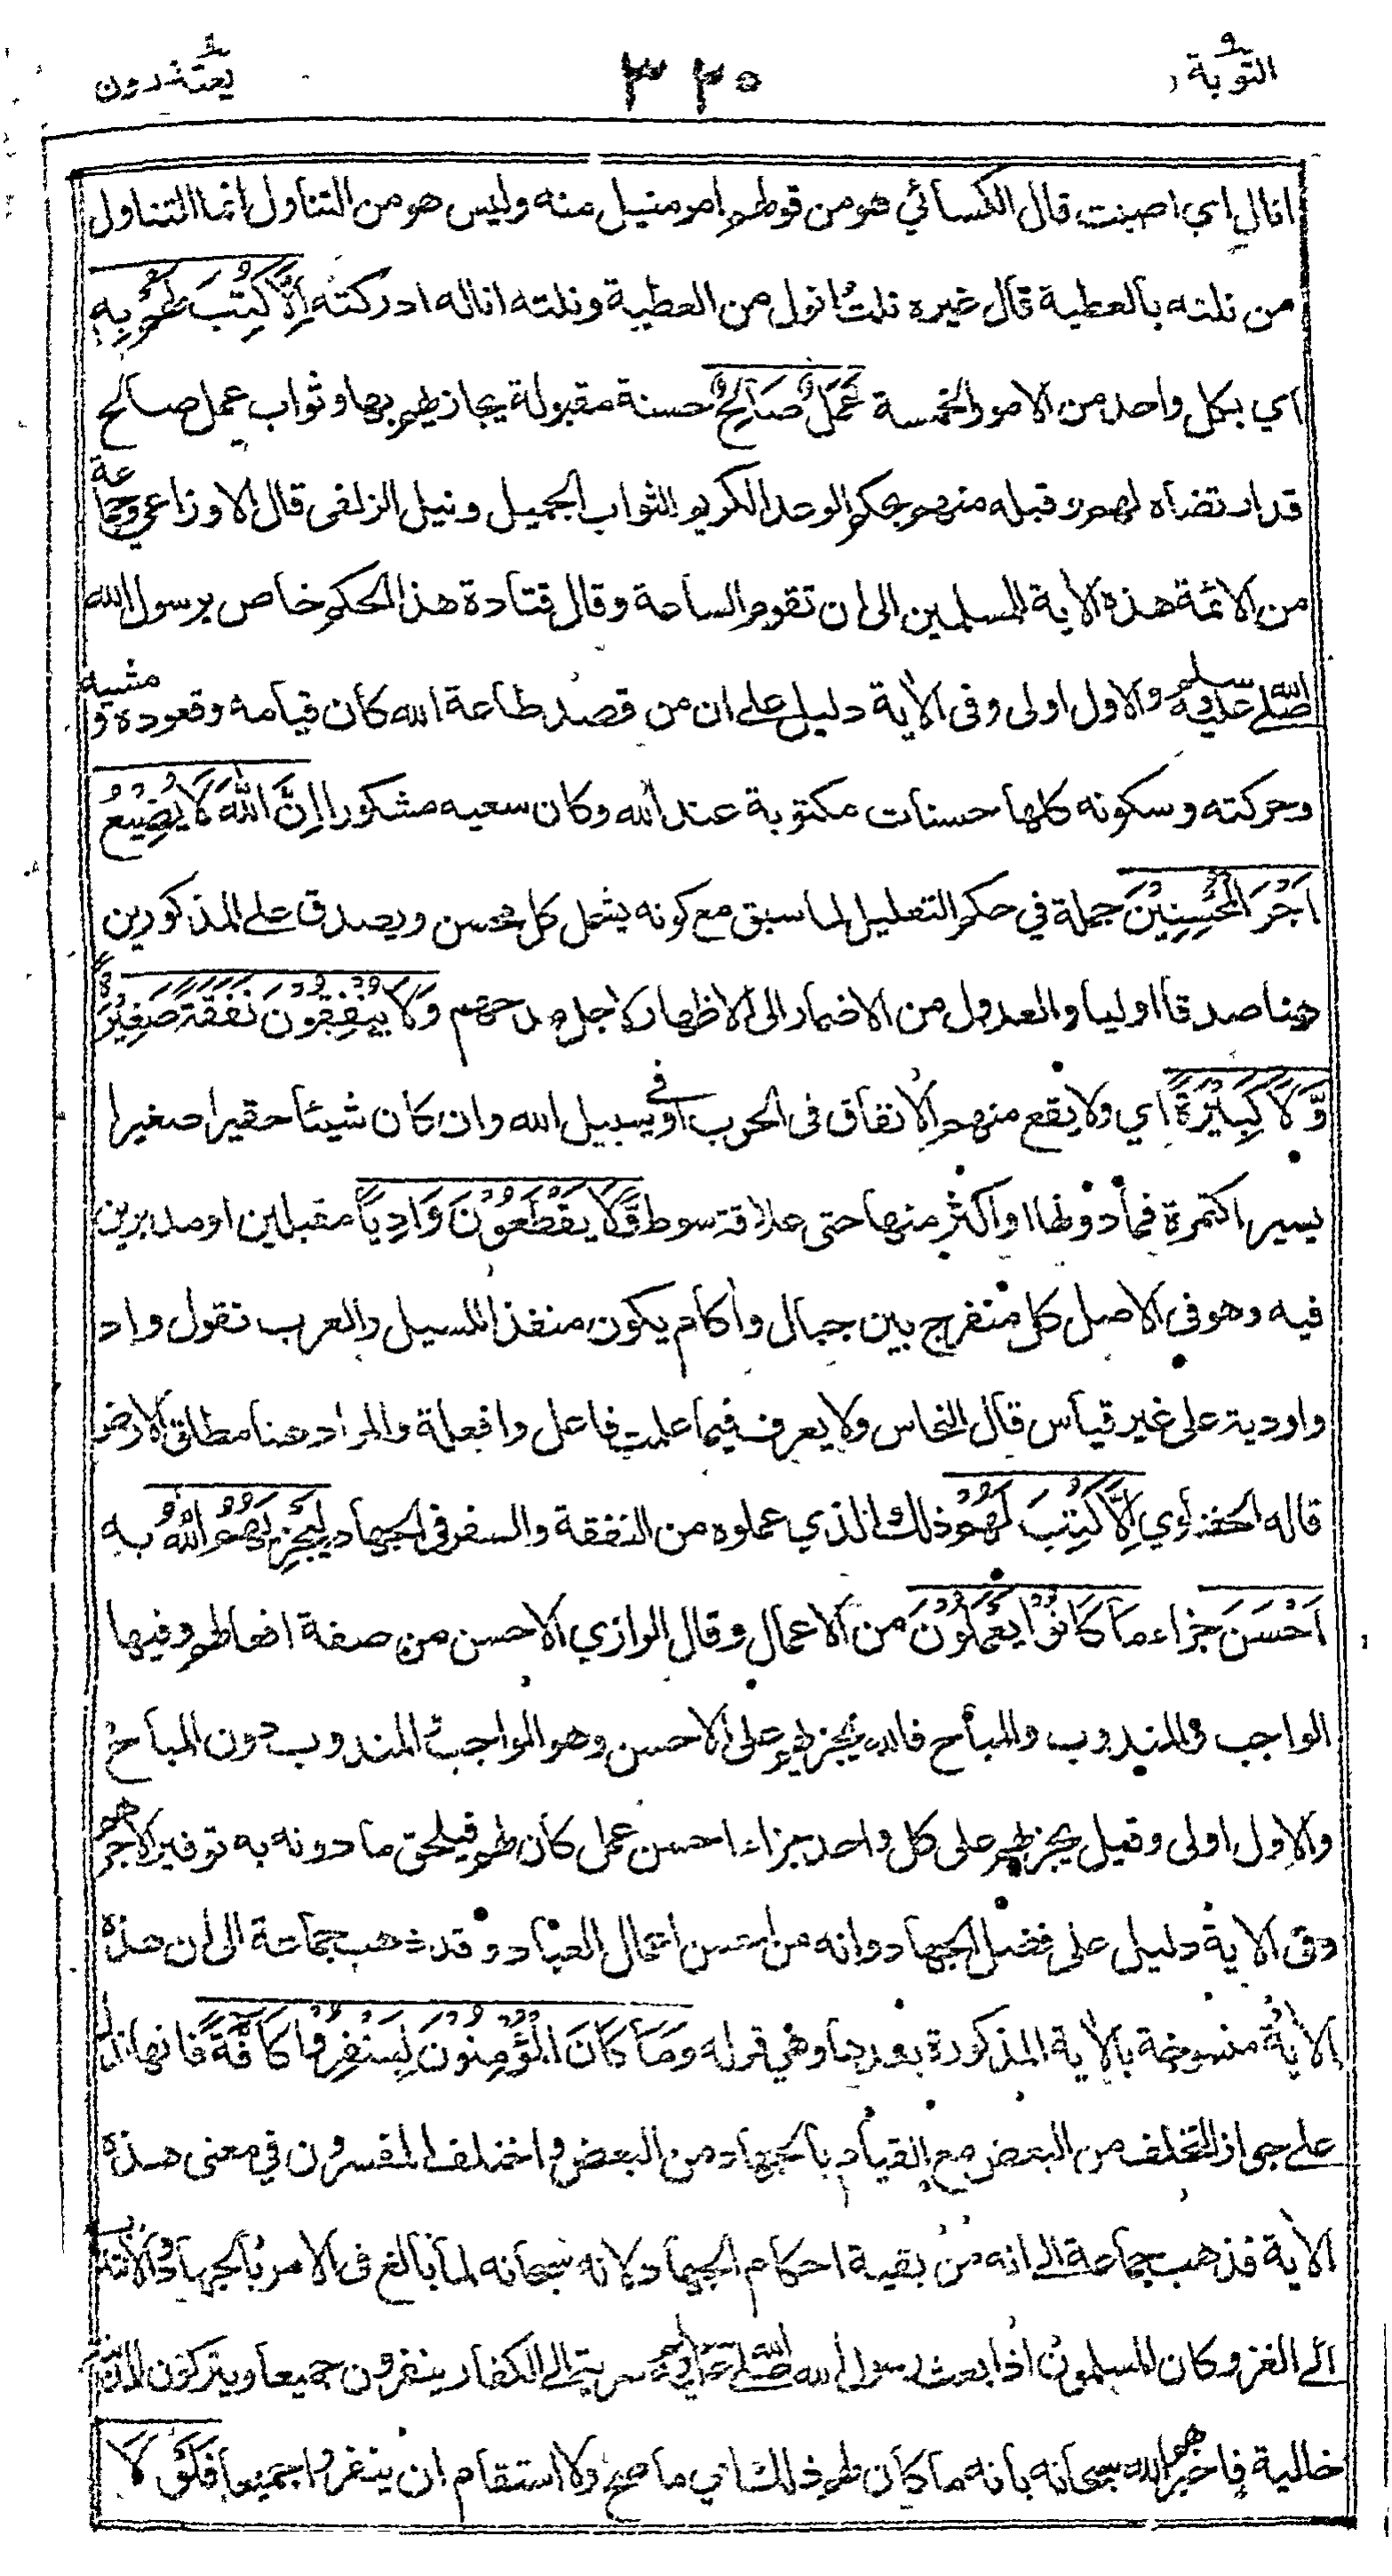 التوبة ٣٢٠ يعتذرون
انال اي اصبت قال الكسائي هو من قولهم امر منيل منه وليس هو من التناول انما التناول
من نلته بالعطية قال غيره نلت انول من العطية ونلته اناله ادركته اِلَّا كُتِبَ لَهُمْ بِهٖ
اي بكل واحد من الامور الخمسة عَمَلٌ صَالِحٌ حسنة مقبولة يجازيهم بها وثواب عمل صالح
قد ارتضاه لهم وقبله منهم بحكم الوعد الكريم الثواب الجميل ونيل الزلفى قال الاوزاعي وجماعة
من الائمة هذه الآية للمسلمين الى ان تقوم الساعة وقال قتادة هذا الحكم خاص برسول الله
صلى الله عليه وسلم والاول اولى وفي الآية دليل على ان من قصد طاعة الله كان قيامه وقعوده ومشيه
وحركته وسكونه كلها حسنات مكتوبة عند الله وكان سعيه مشكورا اِنَّ اللّٰهَ لَا يُضِيْعُ
اَجْرَ الْمُحْسِنِيْنَ جملة في حكم التعليل لما سبق مع كونه يشمل كل محسن ويصدق على المذكورين
هنا صدقا اوليا والعدول من الاضمار الى الاظهار لاجل مدحهم وَلَا يُنْفِقُوْنَ نَفَقَةً صَغِيْرَةً
وَّلَا كَبِيْرَةً اي ولا يقع منهم الانفاق في الحرب او في سبيل الله وان كان شيئا حقيرا صغيرا
يسيرا كتمرة فما دونها او اكثر منها حتى علاقة سوط وَّلَا يَقْطَعُوْنَ وَادِيًا مقبلين او مدبرين
فيه وهو في الاصل كل منفرج بين جبال وآكام يكون منفذا للسيل والعرب تقول واد
واودية على غير قياس قال النحاس ولا يعرف فيما علمت فاعل وافعلة والمراد هنا مطلق الارض
قاله الحفناوي اِلَّا كُتِبَ لَهُمْ ذلك الذي عملوه من النفقة والسفر في الجهاد لِيَجْزِيَهُمُ اللّٰهُ به
اَحْسَنَ جزاء مَا كَانُوْا يَعْمَلُوْنَ من الاعمال وقال الرازي الاحسن من صفة افعالهم وفيها
الواجب والمندوب والمباح فالله يجزيهم على الاحسن وهو الواجب والمندوب دون المباح
والاول اولى وقيل يجزيهم على كل واحد جزاء احسن عمل كان لهم فيلحق ما دونه به توفيرا لاجرهم
وفي الآية دليل على فضل الجهاد وانه من احسن اعمال العباد وقد ذهب جماعة الى ان هذه
الآية منسوخة بالآية المذكورة بعدها وهي قوله وَمَا كَانَ الْمُؤْمِنُوْنَ لِيَنْفِرُوْا كَآفَّةً فانها
على جواز التخلف من البعض مع القيام بالجهاد من البعض واختلف المفسرون في معنى هذه
الآية فذهب جماعة الى انه من بقية احكام الجهاد لانه سبحانه لما بالغ في الامر بالجهاد والانتداب
الى الغزو كان المسلمون اذا بعث رسول الله صلى الله عليه وسلم سرية الى الكفار ينفرون جميعا ويتركون المدينة
خالية فاخبرهم الله سبحانه بانه ما كان لهم ذلك اي ما صح ولا استقام ان ينفروا جميعا فَلَوْ لَا